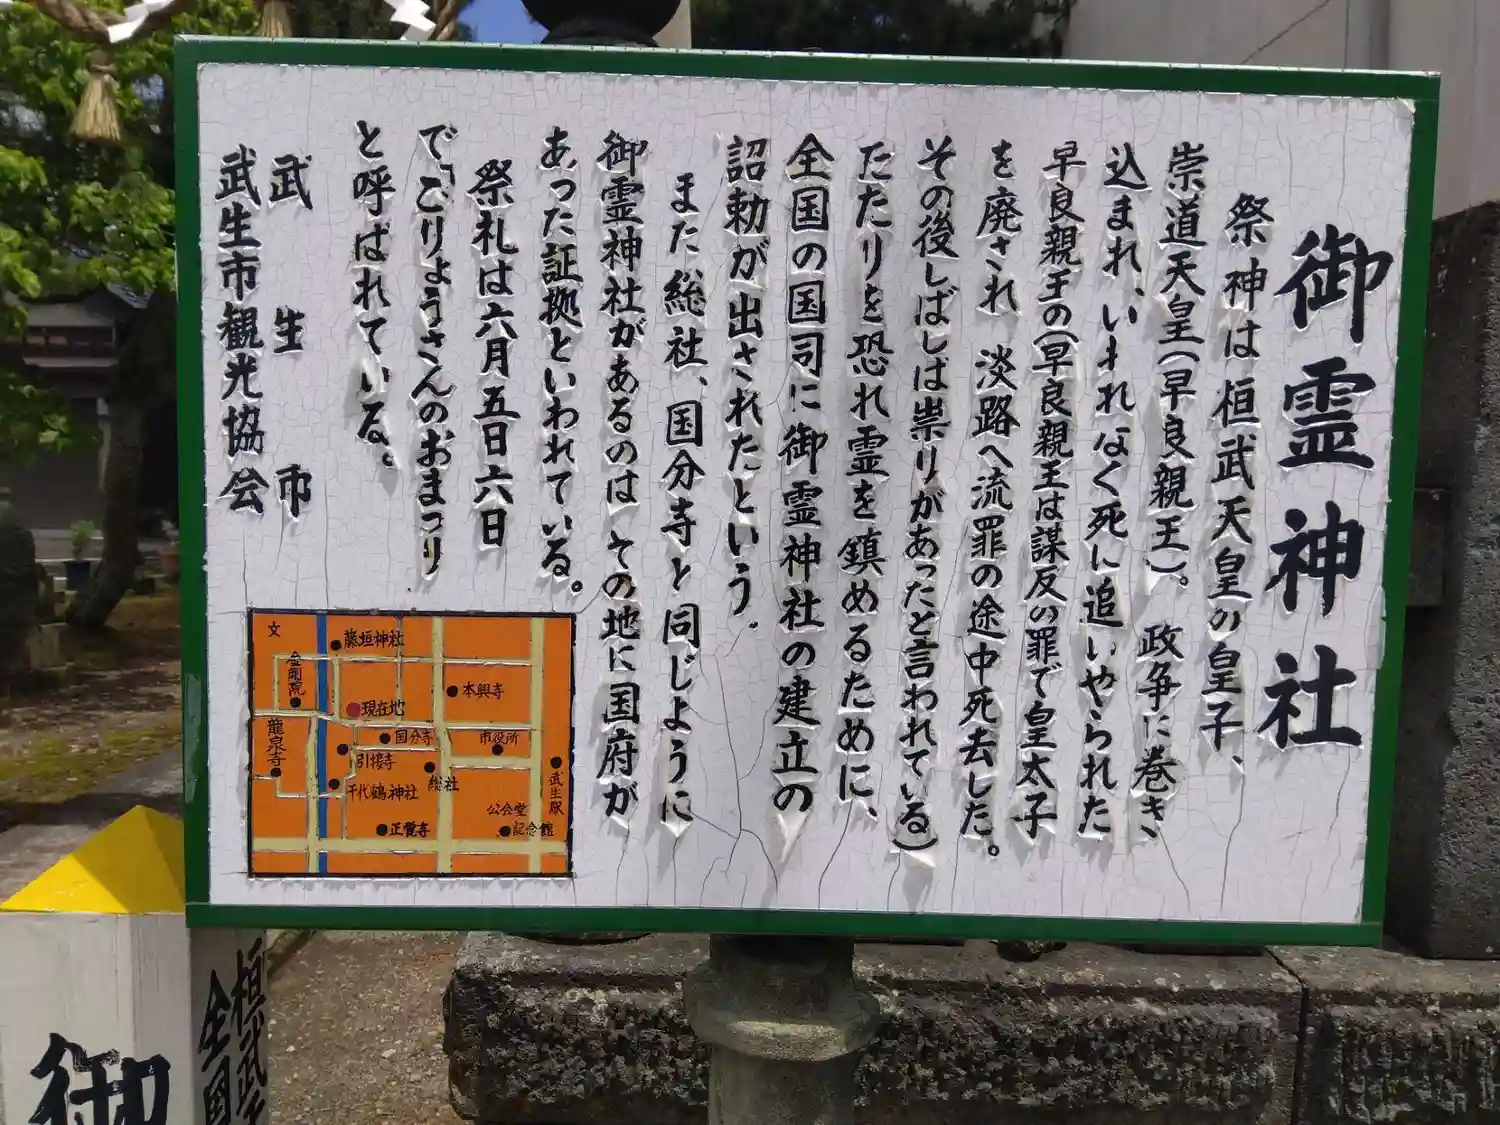 御霊神社
祭神は桓武天皇の皇子、
崇道天皇(早良親王)。政争に巻き
込まれ、いわれなく死に追いやられた
早良親王の(早良親王は謀反の罪で皇太子
を廃され 淡路へ流罪の途中死去した。
その後しばしば祟りがあったと言われている)
たたりを恐れ霊を鎮めるために、
全国の国司に御霊神社の建立の
詔勅が出されたという.
また総社、国分寺と同じように
御霊神社があるのはその地に国府が
あった証拠といわれている。
祭礼は六月五日六日
で「ごりょうさんのおまつり
と呼ばれている。
武生市
武生市観光協会
文
藤垣神社
金剛院
本興寺
現在地
龍泉寺
国分寺
市役所
引接寺
総社
武生駅
千代鶴神社
公会堂
記念館
正覚寺
御
桓武天
全国